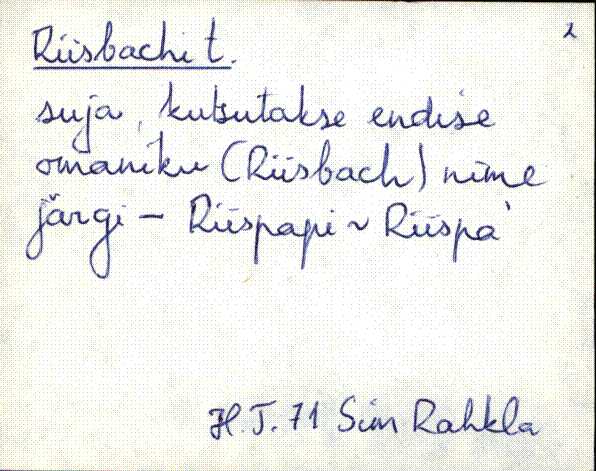 Riisbachi t. 2
suja, kutsutakse endise
omaniku (Riisbach) nime
järgi – Riispapi ~ Riispa'
H.T. 71 Sim Rahkla